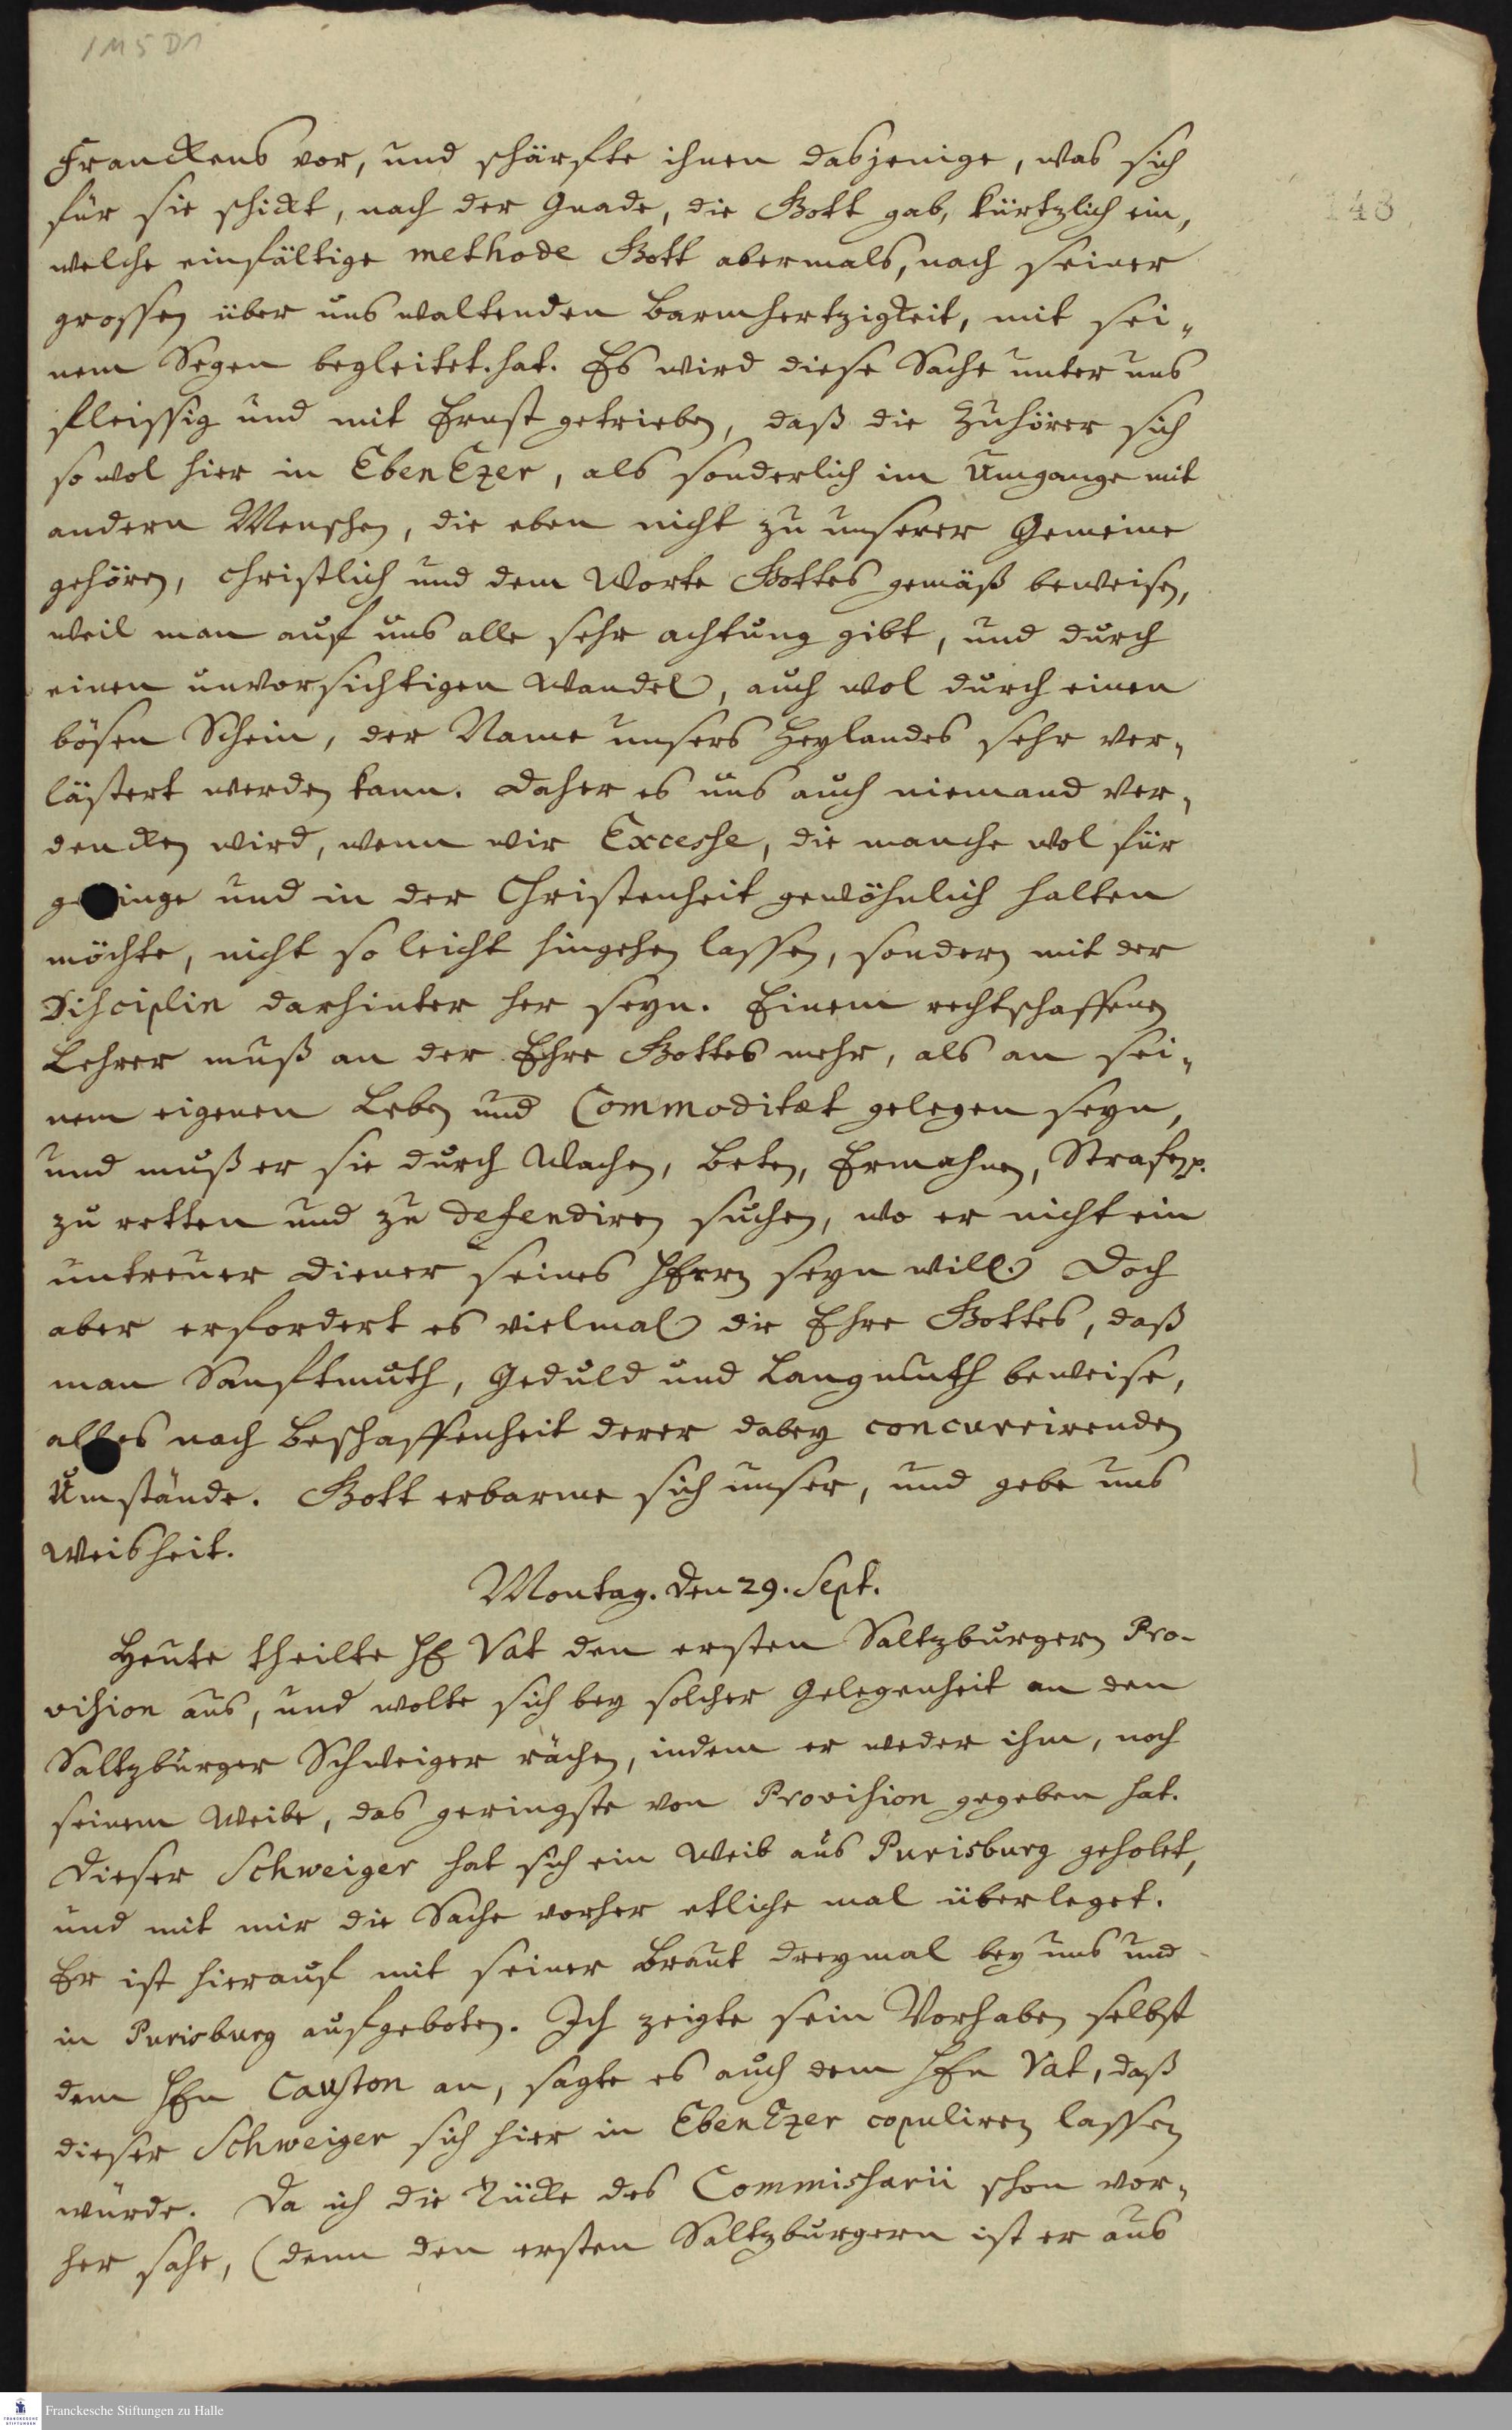 1M5 D1
148
Franckens vor, und schärfte ihnen dasjenige, was sich
für sie schickt, nach der Gnade, die Gott gab, kürtzlich ein,
welche einfältige methode Gott abermals, nach seiner
grossen über uns waltenden Barmhertzigkeit, mit sei-
nem Segen begleitet hat. Es wird diese Sache unter uns
fleissig und mit Ernst getrieben, daß die Zuhörer sich
so wol hier in EbenEzer, als sonderlich im Umgange mit
andern Menschen, die eben nicht zu unserer Gemeine
gehören, christlich und dem Worte Gottes gemäß beweisen,
weil man auf uns alle sehr achtung gibt, und durch
einen unvorsichtigen Wandel, auch wol durch einen
bösen Schein, der Name unsers Heylandes sehr ver-
lästert werden kann. Daher es uns auch niemand ver-
dencken wird, wenn wir Excesse, die manche wol für
geringe und in der Christenheit gewöhnlich halten
möchte, nicht so leicht hingehen lassen, sondern mit der
Disciplin darhinter her seyn. Einem rechtschaffenen
Lehrer muß an der Ehre Gottes mehr, als an sei-
nem eigenen Leben und Commoditæt gelegen seyn,
und muß er sie durch Wachen, Beten, Ermahnen, Strafen p.
zu retten und zu defendiren suchen, wo er nicht ein
untreuer Diener seines HErrn seyn will. Doch
aber erfordert es vielmal die Ehre Gottes, daß
man Sanftmuth, Geduld und Langmuth beweise,
alles nach Beschaffenheit derer dabey concurrirenden
Umstände. Gott erbarme sich unser, und gebe uns
Weisheit.
Montag. den 29. Sept.
Heute theilte HE Vat den ersten Saltzburgern Pro-
vision aus, und wolte sich bey solcher Gelegenheit an dem
Saltzburger Schweiger rächen, indem er weder ihm, noch
seinem Weibe, das geringste von Provision gegeben hat.
Dieser Schweiger hat sich ein Weib aus Purisburg geholet,
und mit mir die Sache vorher etliche mal überleget.
Er ist hierauf mit seiner Braut dreymal bey uns und
in Purisburg aufgeboten. Ich zeigte sein Vorhaben selbst
dem HEn Causton an, sagte es auch dem HEn Vat, daß
dieser Schweiger sich hier in EbenEzer copuliren lassen
würde. Da ich die Tücke des Commissarii schon vor-
her sahe, (denn den ersten Saltzburgern ist er aus
Franckesche Stiftungen zu Halle